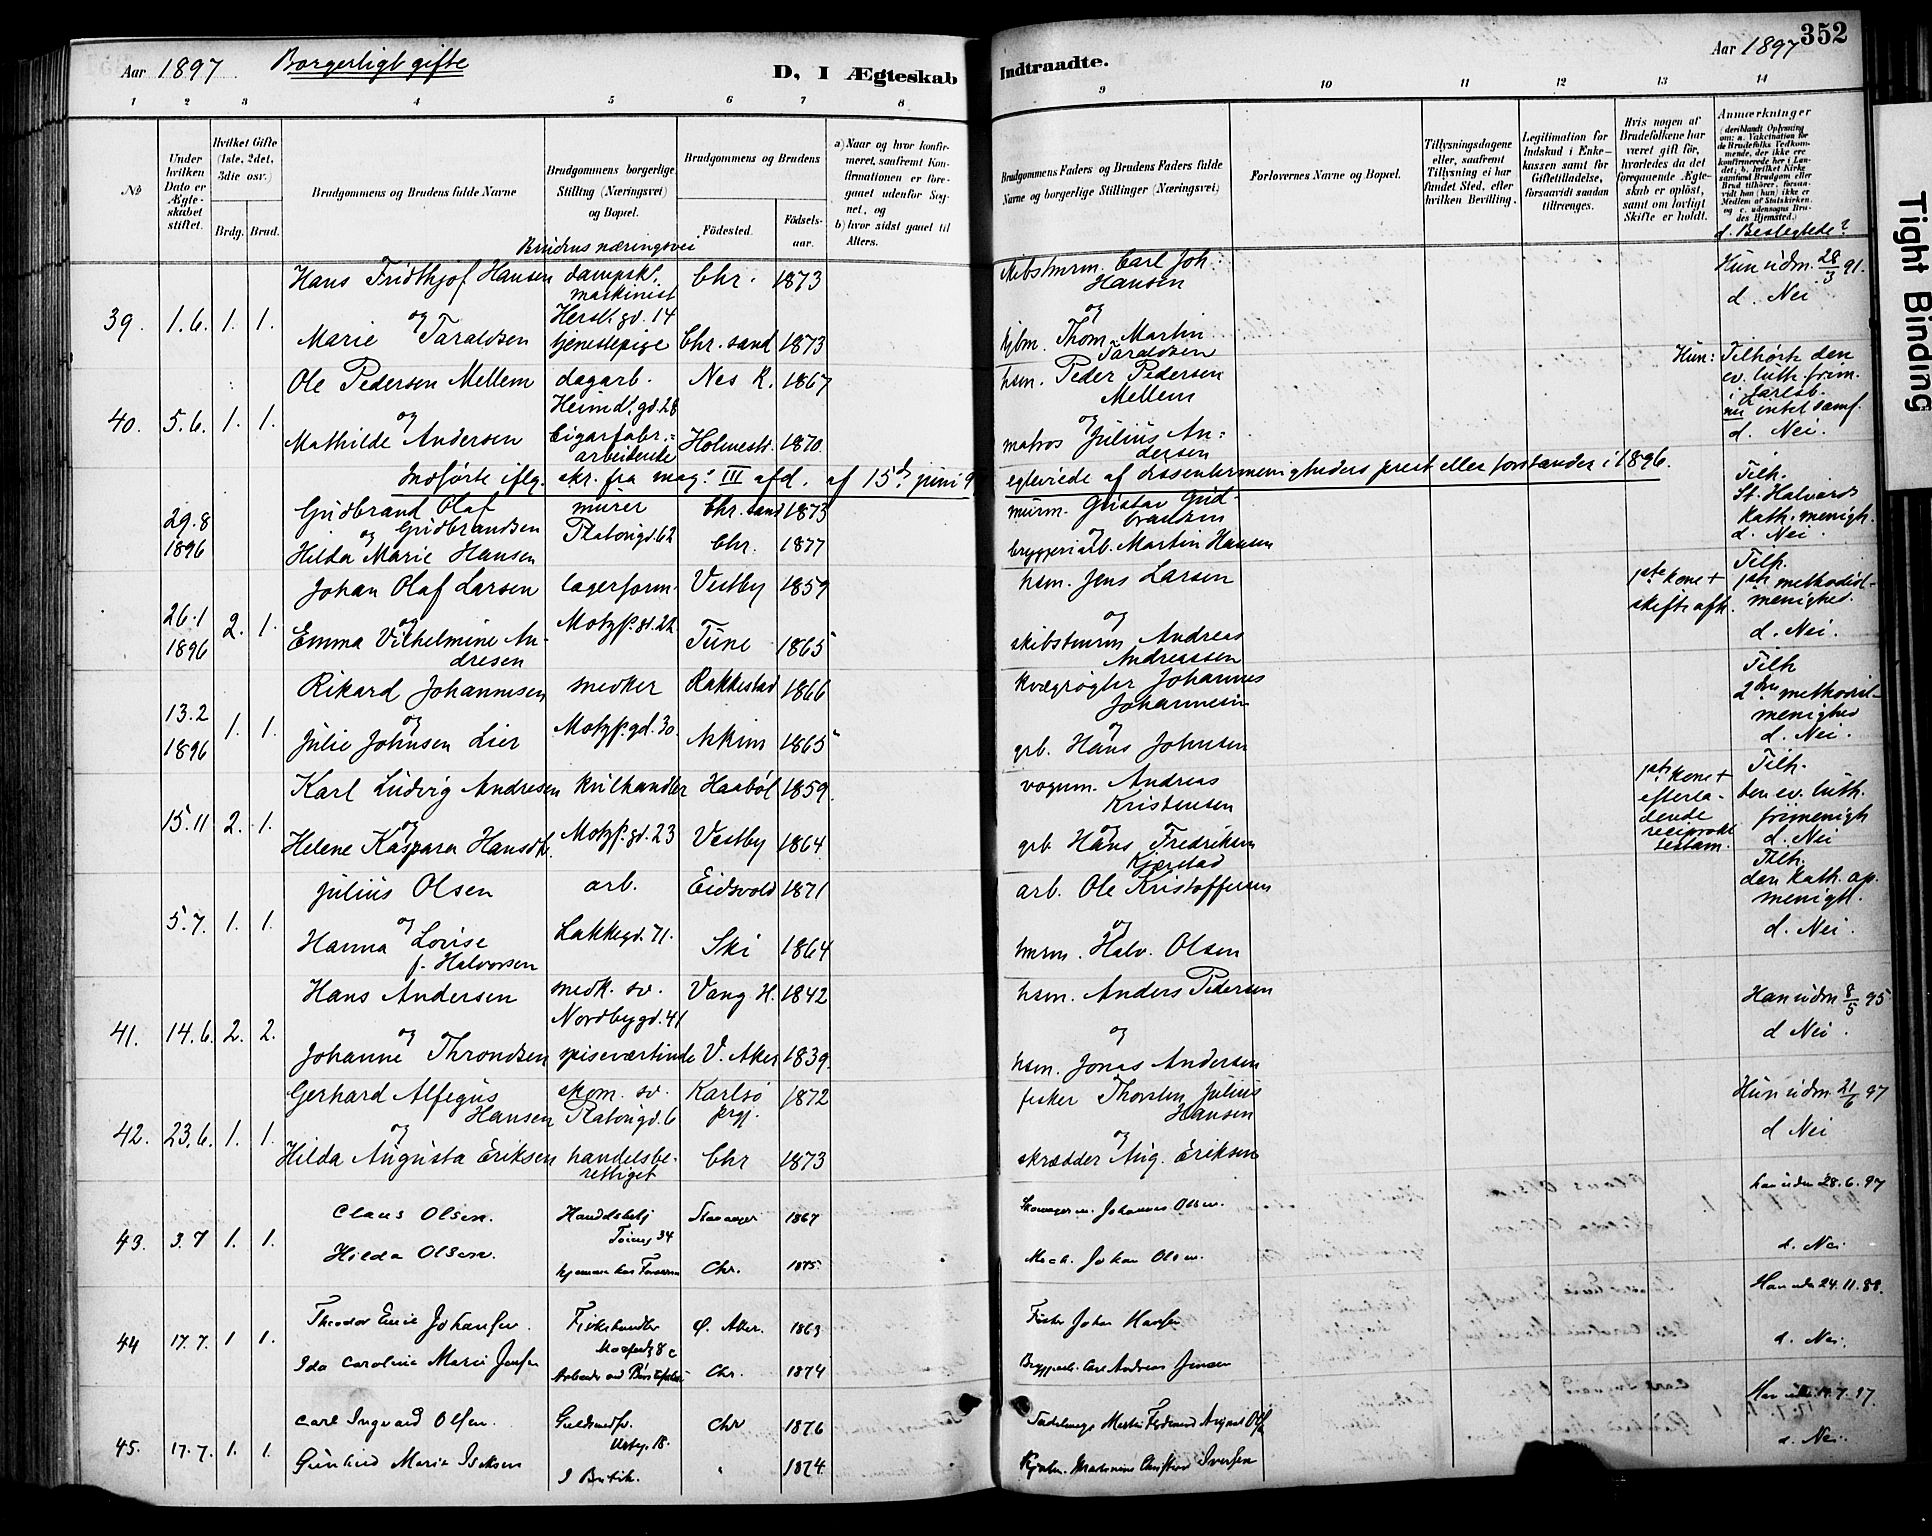 352
Aar 1897 Borgerligt gifte D, I Ægteskab
Indtraadte. Aar 1897
1 2 3 4 5 6 7 8
9 10 11 12 13 14
No
Under hvilken Dato er Ægteskabet stiftet.
Hvilket Gifte (1ste, 2det, 3die osv.)
Brdg. Brud.
Brudgommens og Brudens fulde Navne
Brudgommens borgerlige Stilling (Næringsvei) og Bopæl.
Brudens næringsvei
Brudgommens og Brudens
Fødested. Fødselsaar.
a) Naar og hvor konfirmeret, saafremt Konfirmationen er foregaaet udenfor Sognet, og
b) hvor sidst gaaet til Alters.
Brudgommens Faders og Brudens Faders fulde Navne og borgerlige Stillinger (Næringsvei)
Forlovernes Navne og Bopæl.
Tillysningsdagene eller, saafremt Tillysning ei har fundet Sted, efter hvilken Bevilling.
Legitimation for Indskud i Enkekassen samt for Giftetilladelse, forsaavidt saadan tiltrænges.
Hvis nogen af Brudefolkene har været gift før, hvorledes da det foregaaende Ægteskab er opløst, samt om lovligt Skifte er holdt.
Anmærkninger
(deriblandt Oplysning om: a. Vakcination for de Brudefolks Vedkommende, der ikke ere konfirmerede her i Landet; b. hvilket Kirkesamfund Brudgom eller Brud tilhører, forsaavidt han (hun) ikke er Medlem af Statskirken, og c. udensogns Brudes Hjemsted.)
d. Beslegtede?
Hans Fridthjof Hansen dampsk. maskinist Chr. 1873 skibstmrm. Carl Joh. Hansen Hun udm. 28/3 91.
39. 1.6. 1. 1. og Hersl. gd. 14 og d. Nei
Marie Taraldsen tjenestepige Chr.sand 1873 tjbm. Thom. Martin Taraldsen
Ole Pedersen Mellem dagarb. Nes R. 1867 hsm. Peder Pedersen Mellem Hun: Tilhørte den ev. luth. frim. i Jarlsb.
40. 5.6. 1. 1. og Heimdl. gd. 28 og nu intet samf.
Mathilde Andersen Cigarfabr.arbeiderske Holmestr. 1870 matros Julius Andersen d. Nei.
Indførte iflg. skr. fra mag.s III afd. af 15d juni 9 egteviede af dissentermenigheders prest eller forstander i 1896.
29.8 1896 Gudbrand Olaf Gudbrandsen murer Chr.sand 1873 murm. Gustav Gudbrandsen Tilh. St. Halvards kath. menigh.
og Platousgd. 62
Hilda Marie Hansen Chr. 1877 bryggeriarb. Martin Hansen d. Nei.
Johan Olaf Larsen lagerform. Vestby 1859 hsm. Jens Larsen 1ste kone + skifte afh. Tilh. 1ste methodistmenighed.
26.1 1896 2. 1. og Motzf. gt. 22 og
Emma Vilhelmine Andresen Tune 1865 skibstmrm Andreas Andreassen d. Nei.
Rikard Johannesen snedker Rakkestad 1866 kvægrøgter Johannes Johannesen Tilh 2den methodistmenighed
13.2 1896 1. 1. og Motzf. gd. 30. og
Julie Johnsen Lier Askim 1865 grb. Hans Johnsen d. Nei.
Karl Ludvig Andresen kulhandler Haabøl 1859. vognm. Andreas Kristensen 1ste kone + efterladende reciprokt testam. Tilh. den ev. luth. frimenigh
15.11 2. 1. og Motzf. gd. 23 og
Helene Kaspara Hansdtr. Vestby 1864 grb. Hans Fredriksen Kjærstad d. Nei
Julius Olsen arb. Eidsvold 1871 arb. Ole Kristoffersen Tilh. den kath. ap. menigh.
5.7. 1. 1. og Lakkegd. 71. og
Hanna Lovise f. Halvorsen Ski 1864 tmrm. Halv. Olsen d. Nei.
Hans Andersen snedk. sv. Vang H. 1842 hsm. Anders Pedersen Han udm 8/5 95
41. 14.6. 2. 2. og Nordbygd. 41 og d Nei.
Johanne Throndsen spiseværtinde V. Aker 1839. hsm. Jonas Andersen
Gerhard Alfegus Hansen skom. sv. Platousgd. 6 Karlsø prgj. 1872 fisker Thorsten Julius Hansen Hun udm 21/6 97
42. 23.6. 1. 1. og og d Nei
Hilda Augusta Eriksen handelsberettiget Chr 1873 skrædder Aug. Eriksen
Claus Olsen. Handelsbetj Stavanger 1867 Johannes Olsen. han udm 28.6.97
43. 3.7 1. 1. Tøieng 34
Hilda Olsen. hjemme hos Forældrene Chr. 1875 Mech. Johan Olsen. d. Nei
Theodor Emil Johansen. Fiskehandler Ø. Aker. 1869 Fisker Johan Hansen Han udm 24.11.88.
44 17.7. 1 1. d. Nei.
Ida Caroline Marie Jensen Chr. 1874 Bryggearb. Carl Andreas Jensen
Carl Ingvard Olsen. Guldsmedsv. Urteg. 18. Chr 1876 Sadelmager Martin Ferdinand August Olsen Han udm 14.7.97.
45. 17.7. 1. 1. d. Nei.
Gunhild Marie Iversen I Butik. 1874 Iversen
Tight Binding